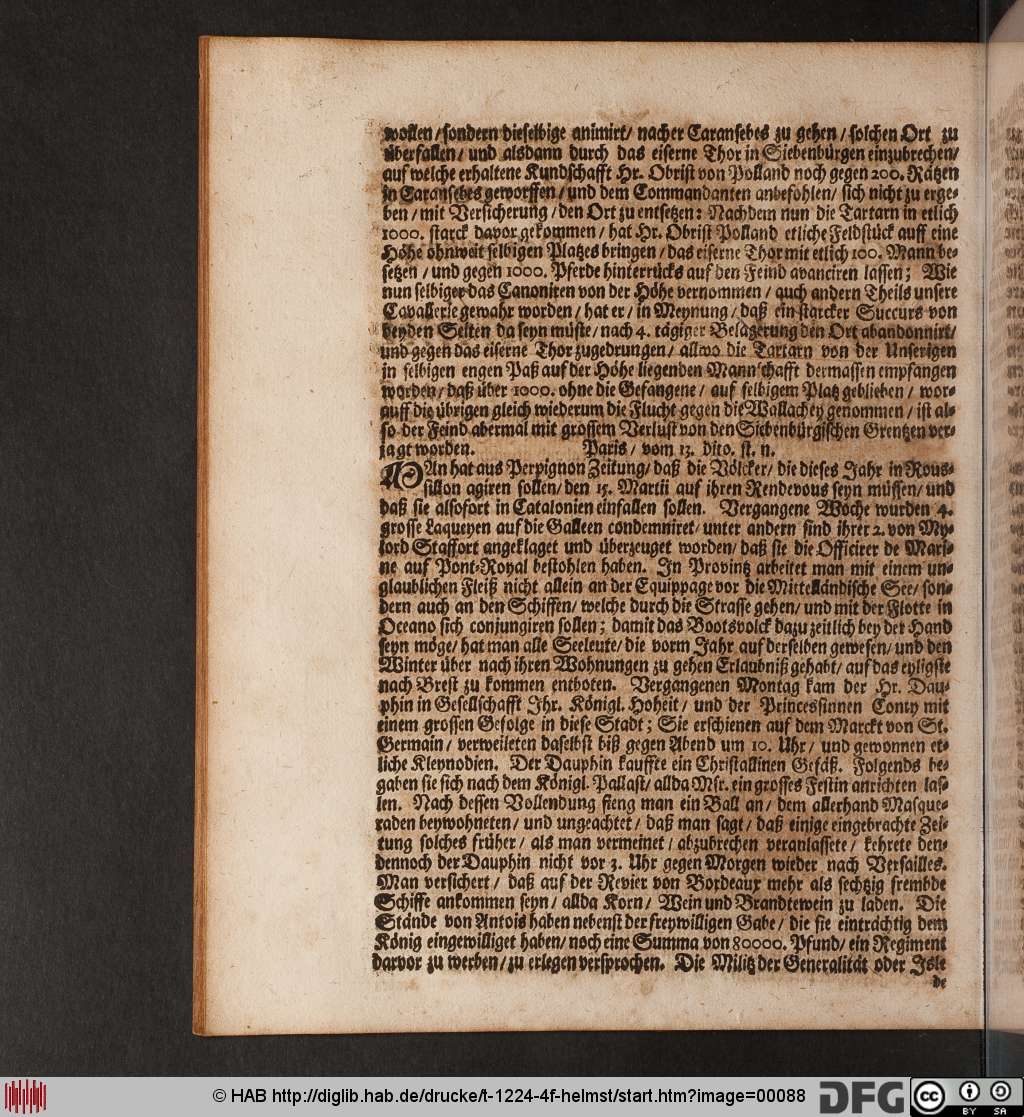 wollen / sondern dieselbige animirt / nacher Caransebes zu gehen / solchen Ort zu
überfallen / und alsdann durch das eiserne Thor in Siebenbürgen einzubrechen /
auf welche erhaltene Kundschafft Hr. Obrist von Polland noch gegen 200. Rätzen
in Caransebes geworffen / und dem Commandanten anbefohlen / sich nicht zu erge-
ben / mit Versicherung / den Ort zu entsetzen: Nachdem nun die Tartarn in etlich
1000. starck davor gekommen / hat Hr. Obrist Polland etliche Feldstück auff eine
Höhe ohnweit selbigen Platzes bringen / das eiserne Thor mit etlich 100. Mann be-
setzen / und gegen 1000. Pferde hinterrücks auf den Feind avanciren lassen; Wie
nun selbiger das Canoniren von der Höhe vernommen / auch andern Theils unsere
Cavallerie gewahr worden / hat er / in Meynung / daß ein starcker Succurs von
beyden Seiten da seyn müste / nach 4. tägiger Belagerung den Ort abandonnirt /
und gegen das eiserne Thor zugedrungen / allwo die Tartarn von der Unserigen
in selbigen engen Paß auf der Höhe liegenden Mannschafft dermassen empfangen
worden / daß über 1000. ohne die Gefangene / auf selbigem Platz geblieben / wor-
auff die übrigen gleich wiederum die Flucht gegen die Wallachey genommen / ist al-
so der Feind abermal mit grossem Verlust von den Siebenbürgischen Grentzen ver-
jagt worden. Paris / vom 13. dito. st. n.
MAn hat aus Perpignon Zeitung / daß die Völcker / die dieses Jahr in Rous-
sillon agiren sollen / den 15. Martii auf ihren Rendevous seyn müssen / und
daß sie alsofort in Catalonien einfallen sollen. Vergangene Woche wurden 4.
grosse Laqueyen auf die Galleen condemniret / unter andern sind ihrer 2. von My-
lord Staffort angeklaget und überzeuget worden / daß sie die Officirer de Mari-
ne auf Pont-Royal bestohlen haben. In Provintz arbeitet man mit einem un-
glaublichen Fleiß nicht allein an der Equippage vor die Mittelländische See / son-
dern auch an den Schiffen / welche durch die Strasse gehen / und mit der Flotte in
Oceano sich conjungiren sollen; damit das Bootsvolck dazu zeitlich bey der Hand
seyn möge / hat man alle Seeleute / die vorm Jahr auf derselben gewesen / und den
Winter über nach ihren Wohnungen zu gehen Erlaubniß gehabt / auf das eyligste
nach Brest zu kommen entboten. Vergangenen Montag kam der Hr. Dau-
phin in Gesellschafft Ihr. Königl. Hoheit / und der Princessinnen Conty mit
einem grossen Gefolge in diese Stadt; Sie erschienen auf dem Marckt von St.
Germain / verweileten daselbst biß gegen Abend um 10. Uhr / und gewonnen et-
liche Kleynodien. Der Dauphin kauffte ein Christallinen Gefäß. Folgends be-
gaben sie sich nach dem Königl. Pallast / allda Msr. ein grosses Festin anrichten las-
sen. Nach dessen Vollendung fieng man ein Ball an / dem allerhand Masque-
raden beywohneten / und ungeachtet / daß man sagt / daß einige eingebrachte Zei-
tung solches früher / als man vermeinet / abzubrechen veranlassete / kehrete den-
dennoch der Dauphin nicht vor 3. Uhr gegen Morgen wieder nach Versailles.
Man versichert / daß auf der Revier von Bordeaux mehr als sechtzig frembde
Schiffe ankommen seyn / allda Korn / Wein und Brandtewein zu laden. Die
Stände von Antois haben nebenst der freywilligen Gabe / die sie einträchtig dem
König eingewilliget haben / noch eine Summa von 80000. Pfund / ein Regiment
darvor zu werben / zu erlegen versprochen. Die Militz der Generalität oder Isle
de
© HAB http://diglib.hab.de/drucke/t-1224-4f-helmst/start.htm?image=00088
DFG
cc BY SA